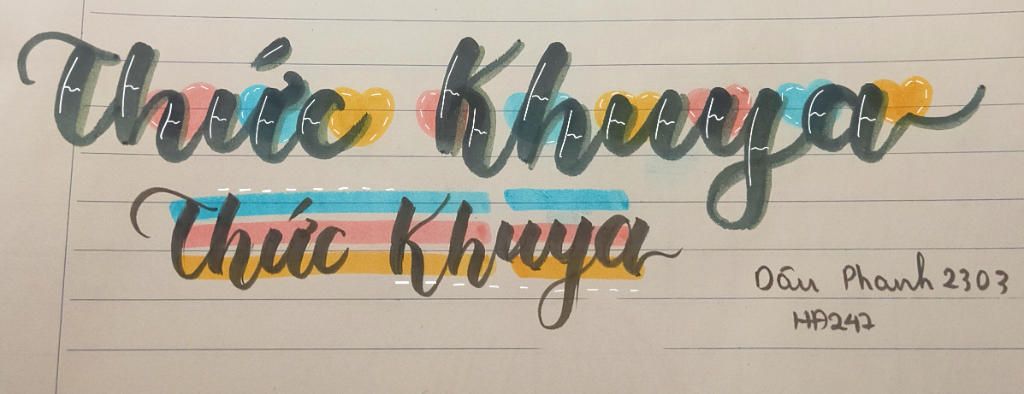 Thức Khuya
Thức Khuya
Dấu Phanh 2303
HA247